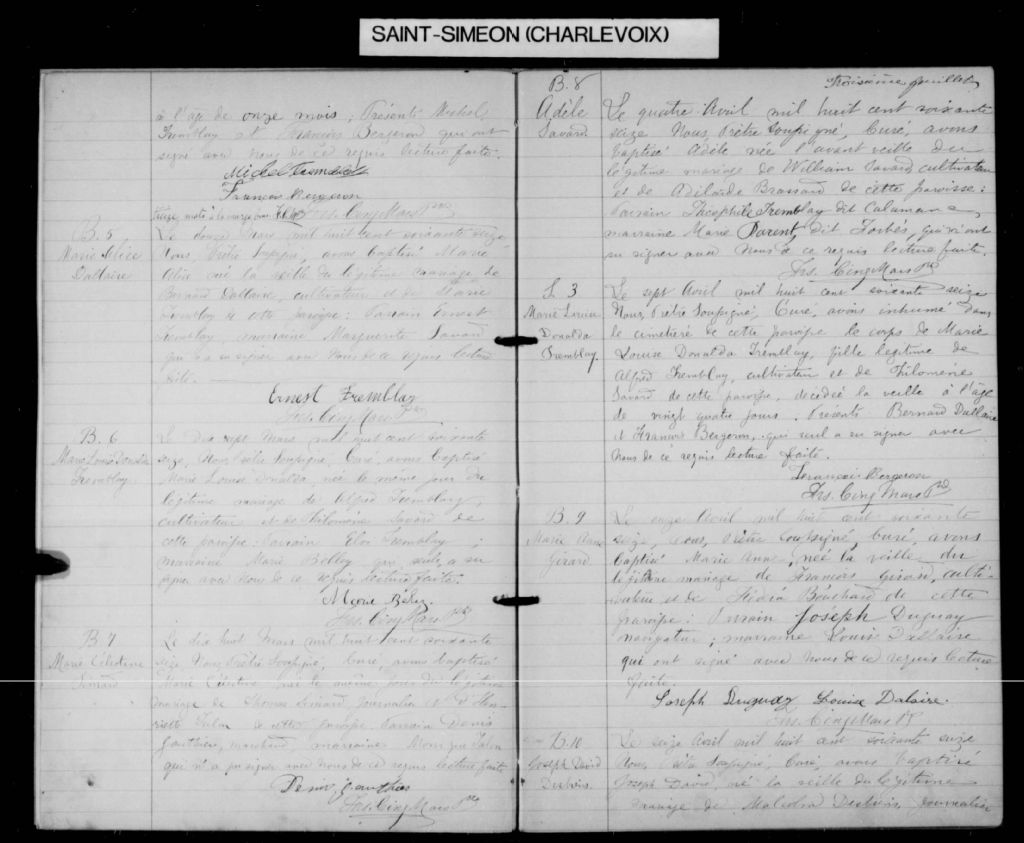 SAINT-SIMEON (CHARLEVOIX)
à l'âge de onze mois ; Présents Michel
Tremblay et François Bergeron qui ont
signé avec nous de ce requis lecture faite.
Michel Tremblay
François Bergeron
Frs. Cinq Mars Ptre
B. 5
Marie Alice
Dallaire
Le douze Mars mil huit cent soixante seize
Nous, Prêtre soussigné, avons baptisé Marie
Alice née la veille du légitime mariage de
Bernard Dallaire, cultivateur et de Marie
Tremblay de cette paroisse : Parrain Ernest
Tremblay, marraine Marguerite Savard
lecture
faite.
Ernest Tremblay
Frs. Cinq Mars Ptre
B. 6
Marie Louise Donalda
Tremblay
Le dix sept Mars mil huit cent soixante
seize, Nous, Prêtre soussigné, Curé, avons baptisé
Marie Louise Donalda, née le même jour du
légitime mariage de Alfred Tremblay,
cultivateur et de Philomène Savard de
cette paroisse. Parrain Elos Tremblay ;
marraine Marie Belley qui seule a su
signer avec nous de ce requis lecture faite.
Marie Beley
Frs. Cinq Mars Ptre
B. 7
Marie Célestine
Simard
Le dix huit Mars mil huit cent soixante
seize Nous Prêtre soussigné, Curé, avons baptisé
Marie Célestine née le même jour du légitime
mariage de Thomas Simard, journalier et d'Hen-
riette Talon de cette paroisse. Parrain Denis
Gauthier, marchand, marraine Talon
qui n'a pu signer avec nous de ce requis lecture faite
Denis Gauthier
Frs. Cinq Mars Ptre
Troisième feuillet
B. 8
Adèle
Savard
Le quatre Avril mil huit cent soixante
seize Nous, Prêtre soussigné, Curé, avons
baptisé Adèle née l'avant veille du
légitime mariage de William Savard cultivateur
et de Adelaïde Brassard de cette paroisse :
Parrain Théophile Tremblay dit
marraine Marie Parent, dit Forbes, qui n'ont
su signer avec nous de ce requis lecture faite.
Frs. Cinq Mars Ptre
S. 3
Marie Louise
Donalda
Tremblay.
Le sept Avril mil huit cent soixante seize
Nous, Prêtre soussigné, Curé, avons inhumé dans
le cimetière de cette paroisse le corps de Marie
Louise Donalda Tremblay, fille légitime de
Alfred Tremblay, cultivateur et de Philomène
Savard de cette paroisse, décédée la veille à l'âge
de vingt quatre jours. Présents Bernard Dallaire
et Francois Bergeron, qui seul a su signer avec
nous de ce requis lecture faite.
Francois Bergeron
Frs. Cinq Mars Ptre
B. 9
Marie Anna
Girard
Le onze Avril mil huit cent soixante
seize, Nous, Prêtre soussigné, Curé, avons
baptisé Marie Anna, née la veille du
légitime mariage de Francois Girard, culti-
vateur et de Bouchard de cette
paroisse : Parrain Joseph Duguay
navigateur ; marraine Louise Dallaire
qui ont signé avec nous de ce requis lecture
faite.
Joseph Duguay Louise Dalaire.
Frs. Cinq Mars Ptre
B. 10
Joseph David
Desbiens
Le seize Avril mil huit cent soixante seize
Nous, Prêtre soussigné, Curé, avons baptisé
Joseph David, né la veille du légitime
mariage de Desbiens, journalier